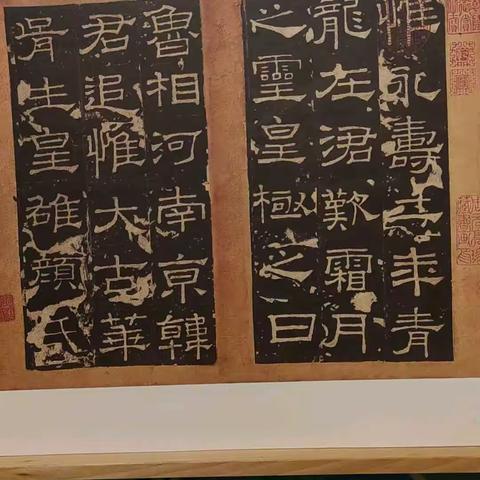 惟永壽二年青
龍在涒歎霜月
之靈皇極之日
魯相河南京韓
君追惟大古華
胥生皇雄顏氏